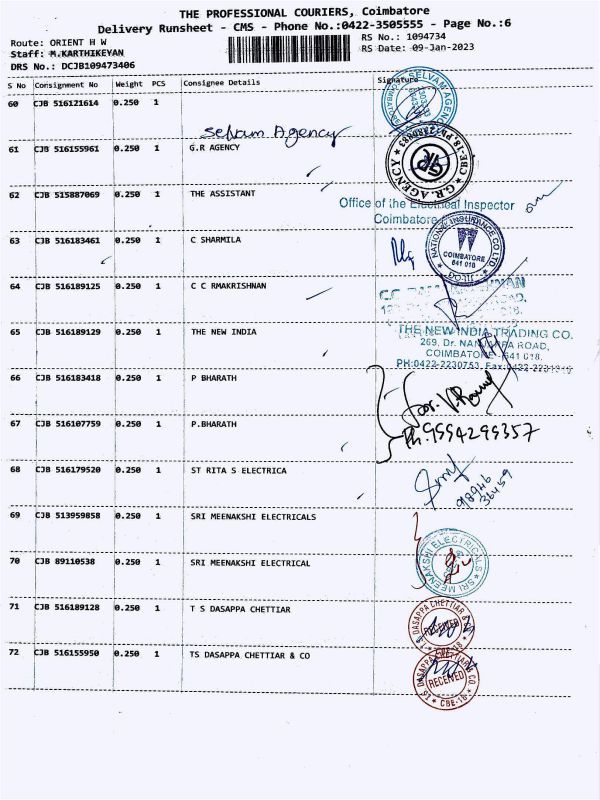 THE PROFESSIONAL COURIERS, Coimbatore
Delivery Runsheet - CMS - Phone No.:0422-3505555 - Page No.:6
Route: ORIENT H W
RS No.: 1094734
Staff: M.KARTHIKEYAN
RS Date: 09-Jan-2023
DRS No.: DCJB109473406
S No Consignment No Weight PCS Consignee Details Signature
60 CJB 516121614 0.250 1
Selvam Agency
SELVAM AGENCY
61 CJB 516155961 0.250 1 G.R AGENCY
G.R. AGENCY
62 CJB 515887069 0.250 1 THE ASSISTANT
Office of the Electrical Inspector
Coimbatore
63 CJB 516183461 0.250 1 C SHARMILA
NATIONAL INSURANCE CO LTD
COIMBATORE
641 018
64 CJB 516189125 0.250 1 C C RMAKRISHNAN
65 CJB 516189129 0.250 1 THE NEW INDIA
THE NEW INDIA TRADING CO.
269, Dr. NANJAPPA ROAD,
COIMBATORE - 641 018.
PH:0422-2230753, Fax:0422-2231319
66 CJB 516183418 0.250 1 P BHARATH
67 CJB 516107759 0.250 1 P.BHARATH
Ph:9994299357
68 CJB 516179520 0.250 1 ST RITA S ELECTRICA
98946
36459
69 CJB 513959858 0.250 1 SRI MEENAKSHI ELECTRICALS
70 CJB 89110538 0.250 1 SRI MEENAKSHI ELECTRICAL
SRI MEENAKSHI ELECTRICALS
71 CJB 516189128 0.250 1 T S DASAPPA CHETTIAR
T.S. DASAPPA CHETTIAR & CO
RECEIVED
CBE-18
72 CJB 516155950 0.250 1 TS DASAPPA CHETTIAR & CO
T.S. DASAPPA CHETTIAR & CO
RECEIVED
CBE-18